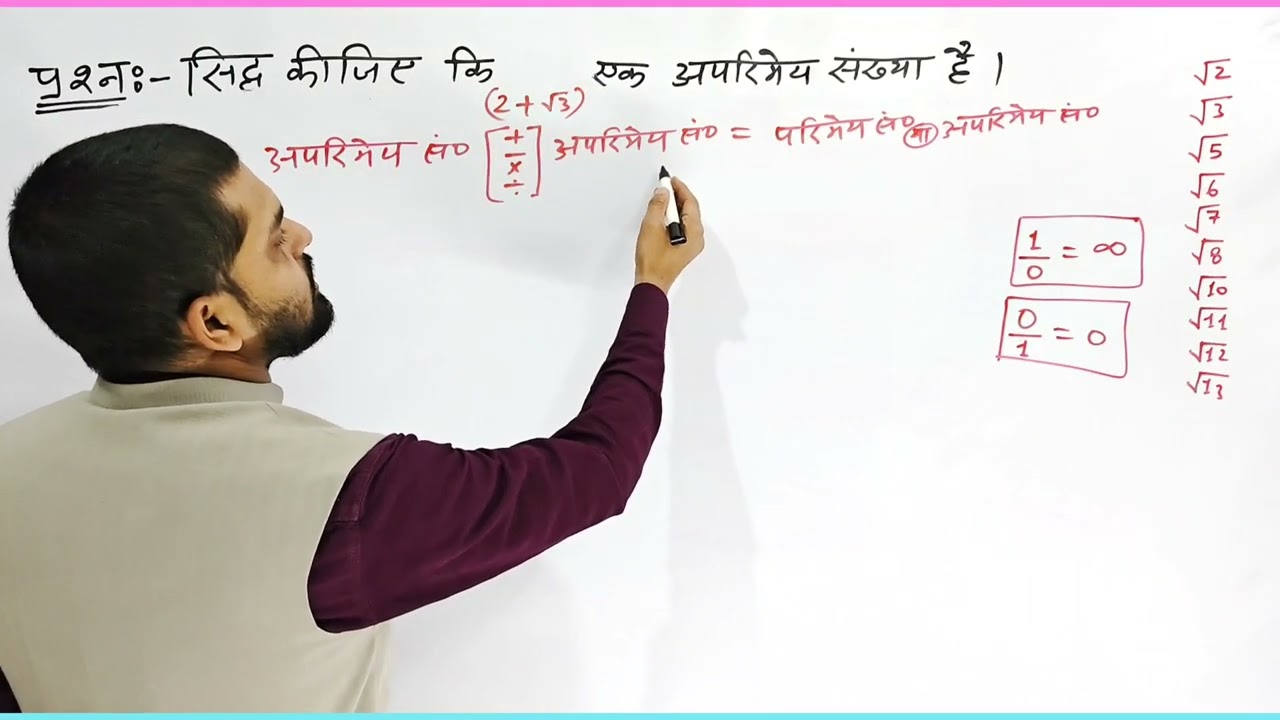 प्रश्नः- सिद्ध कीजिए कि एक अपरिमेय संख्या है ।
(2 + √3)
अपरिमेय सं० [+ - × ÷] अपरिमेय सं० = परिमेय सं० या अपरिमेय सं०
1/0 = ∞
0/1 = 0
√2
√3
√5
√6
√7
√8
√10
√11
√12
√13